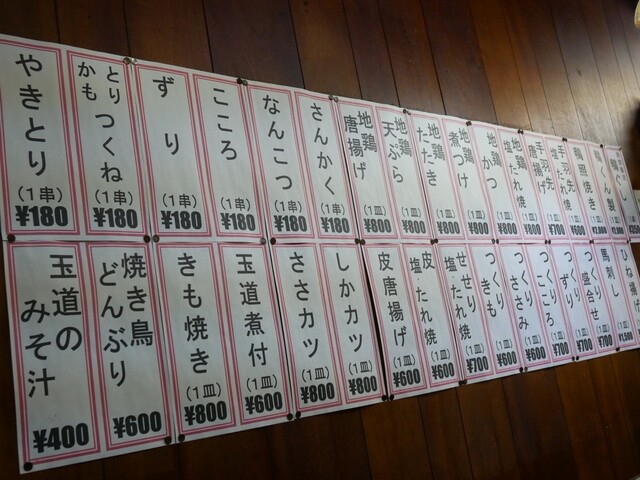 やきとり
(1串)
¥180
とり
かも
つくね
(1串)
¥180
ずり
(1串)
¥180
こころ
(1串)
¥180
なんこつ
(1串)
¥180
さんかく
(1串)
¥180
地鶏
唐揚げ
(1皿)
¥800
地鶏
天ぷら
(1皿)
¥800
地鶏
たたき
(1皿)
¥800
地鶏
煮つけ
(1皿)
¥800
地鶏
かつ
(1皿)
¥800
地鶏
たれ焼
(1皿)
¥800
手羽先
唐揚げ
(1皿)
¥700
手羽先
塩焼
¥600
照焼き
くん製
玉道の
みそ汁
¥400
焼き鳥
どんぶり
¥600
きも焼き
(1皿)
¥800
玉道煮付
(1皿)
¥600
ささカツ
(1皿)
¥800
しかカツ
(1皿)
¥800
皮唐揚げ
(1皿)
¥600
皮
塩・たれ焼
(1皿)
¥600
せせり
塩・たれ焼
(1皿)
¥700
つくり
きも
(1皿)
¥600
つくり
ささみ
(1皿)
¥600
つくり
こころ
(1皿)
¥700
つくり
ずり
(1皿)
¥700
つくり
盛合せ
(1皿)
¥700
馬刺し
(1皿)
ひね
¥1,500